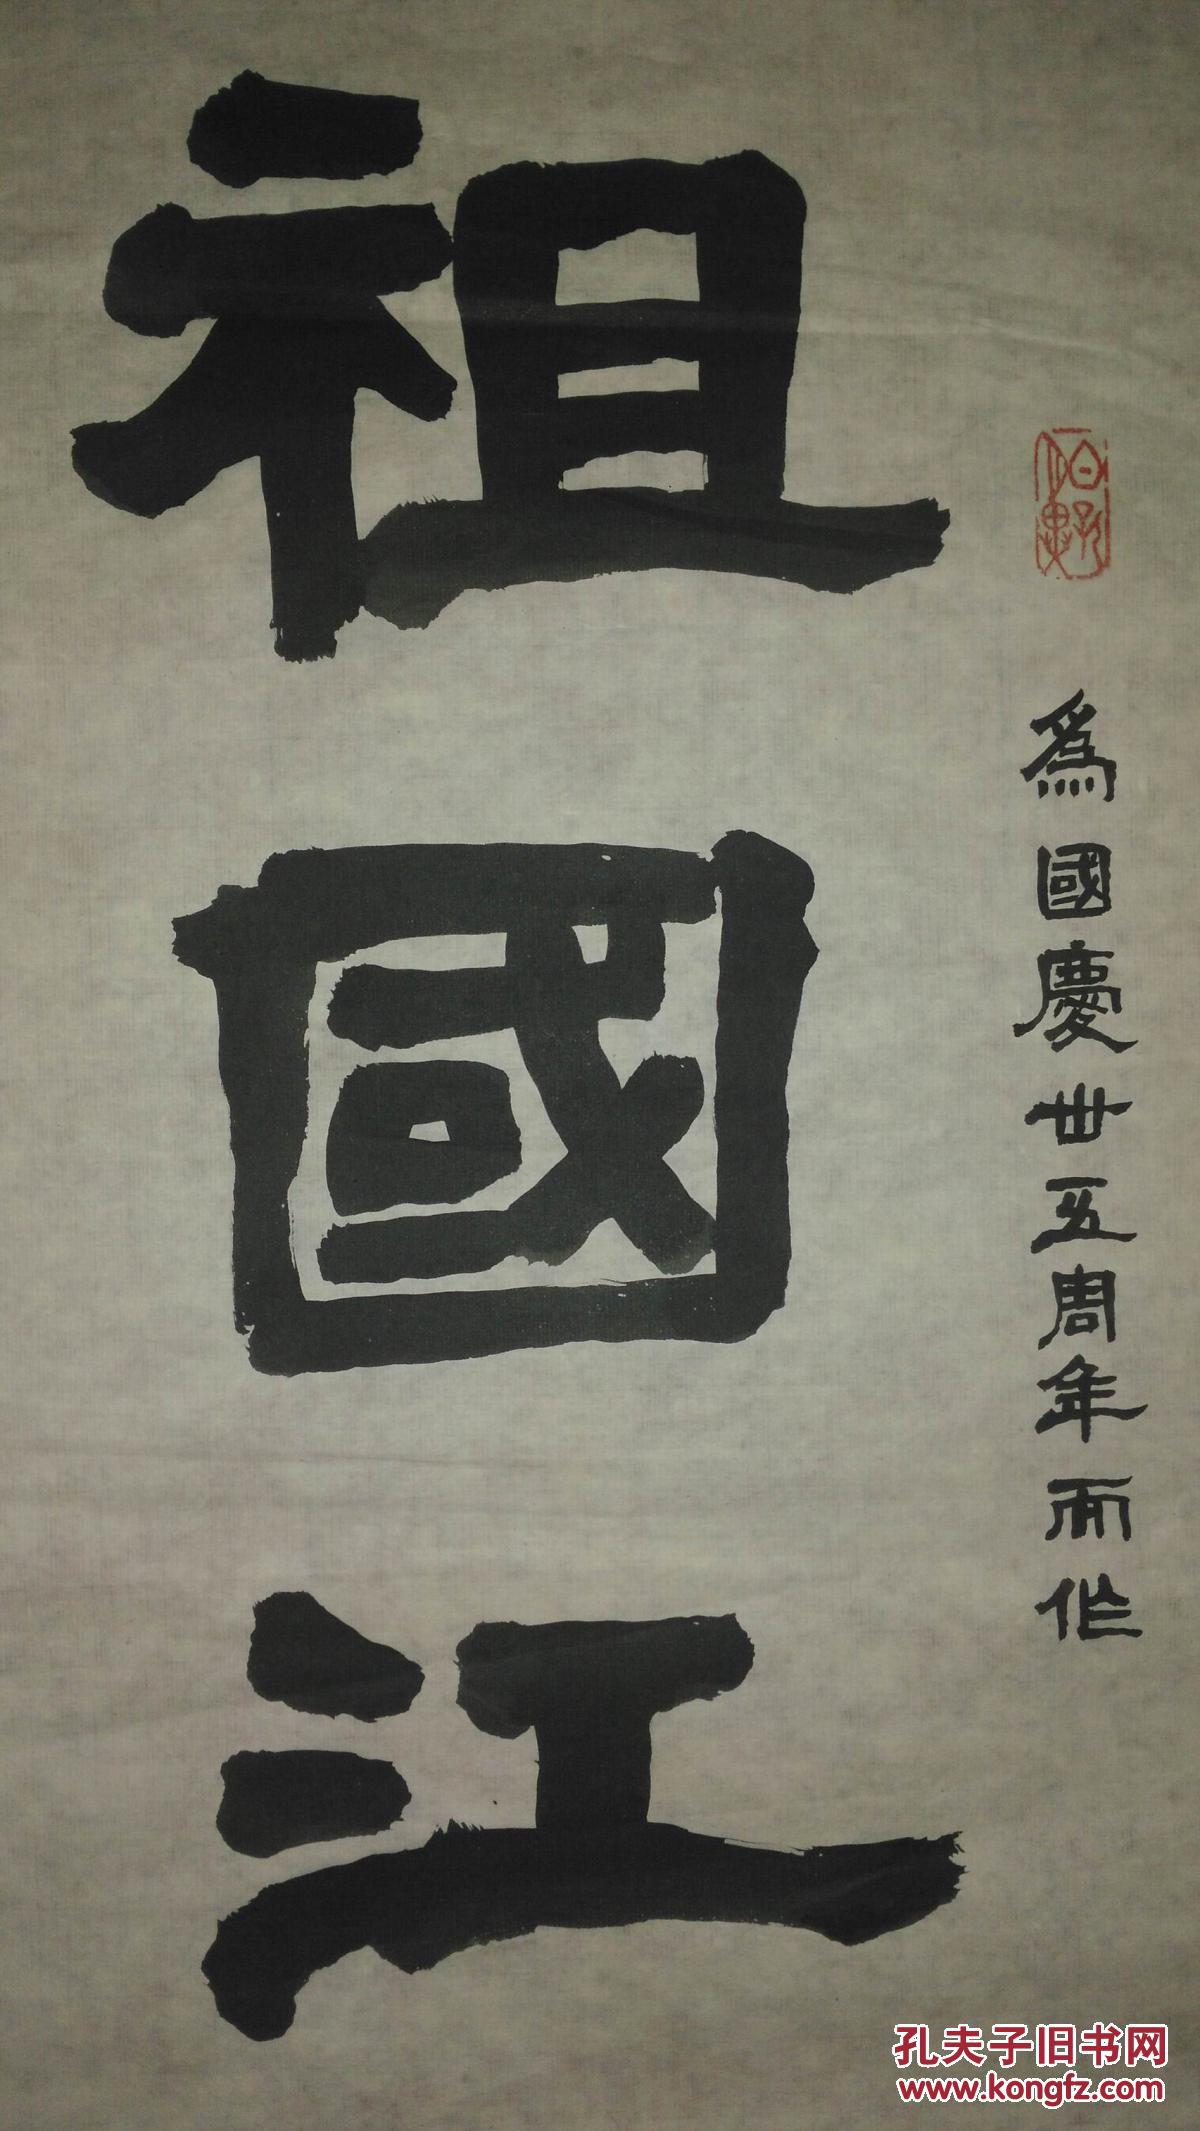 為國慶卅五周年而作
祖國江
孔夫子旧书网
www.kongfz.com